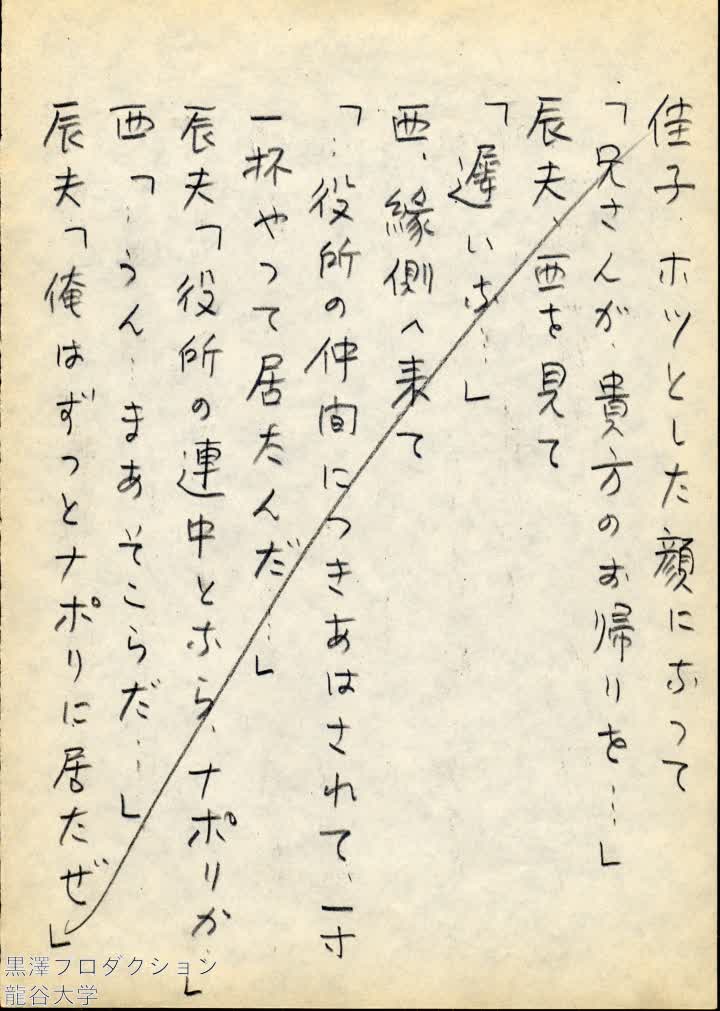 佳子、ホツとした顔になつて
「兄さんが、貴方のお帰りを…」
辰夫、西を見て
「遅いな…」
西、縁側へ来て
「…役所の仲間につきあはされて、一寸
一杯やつて居たんだ…」
辰夫「役所の連中となら、ナポリか」
西「…うん…まあそこらだ…」
辰夫「俺はずつとナポリに居たぜ」
黒澤プロダクション
龍谷大学